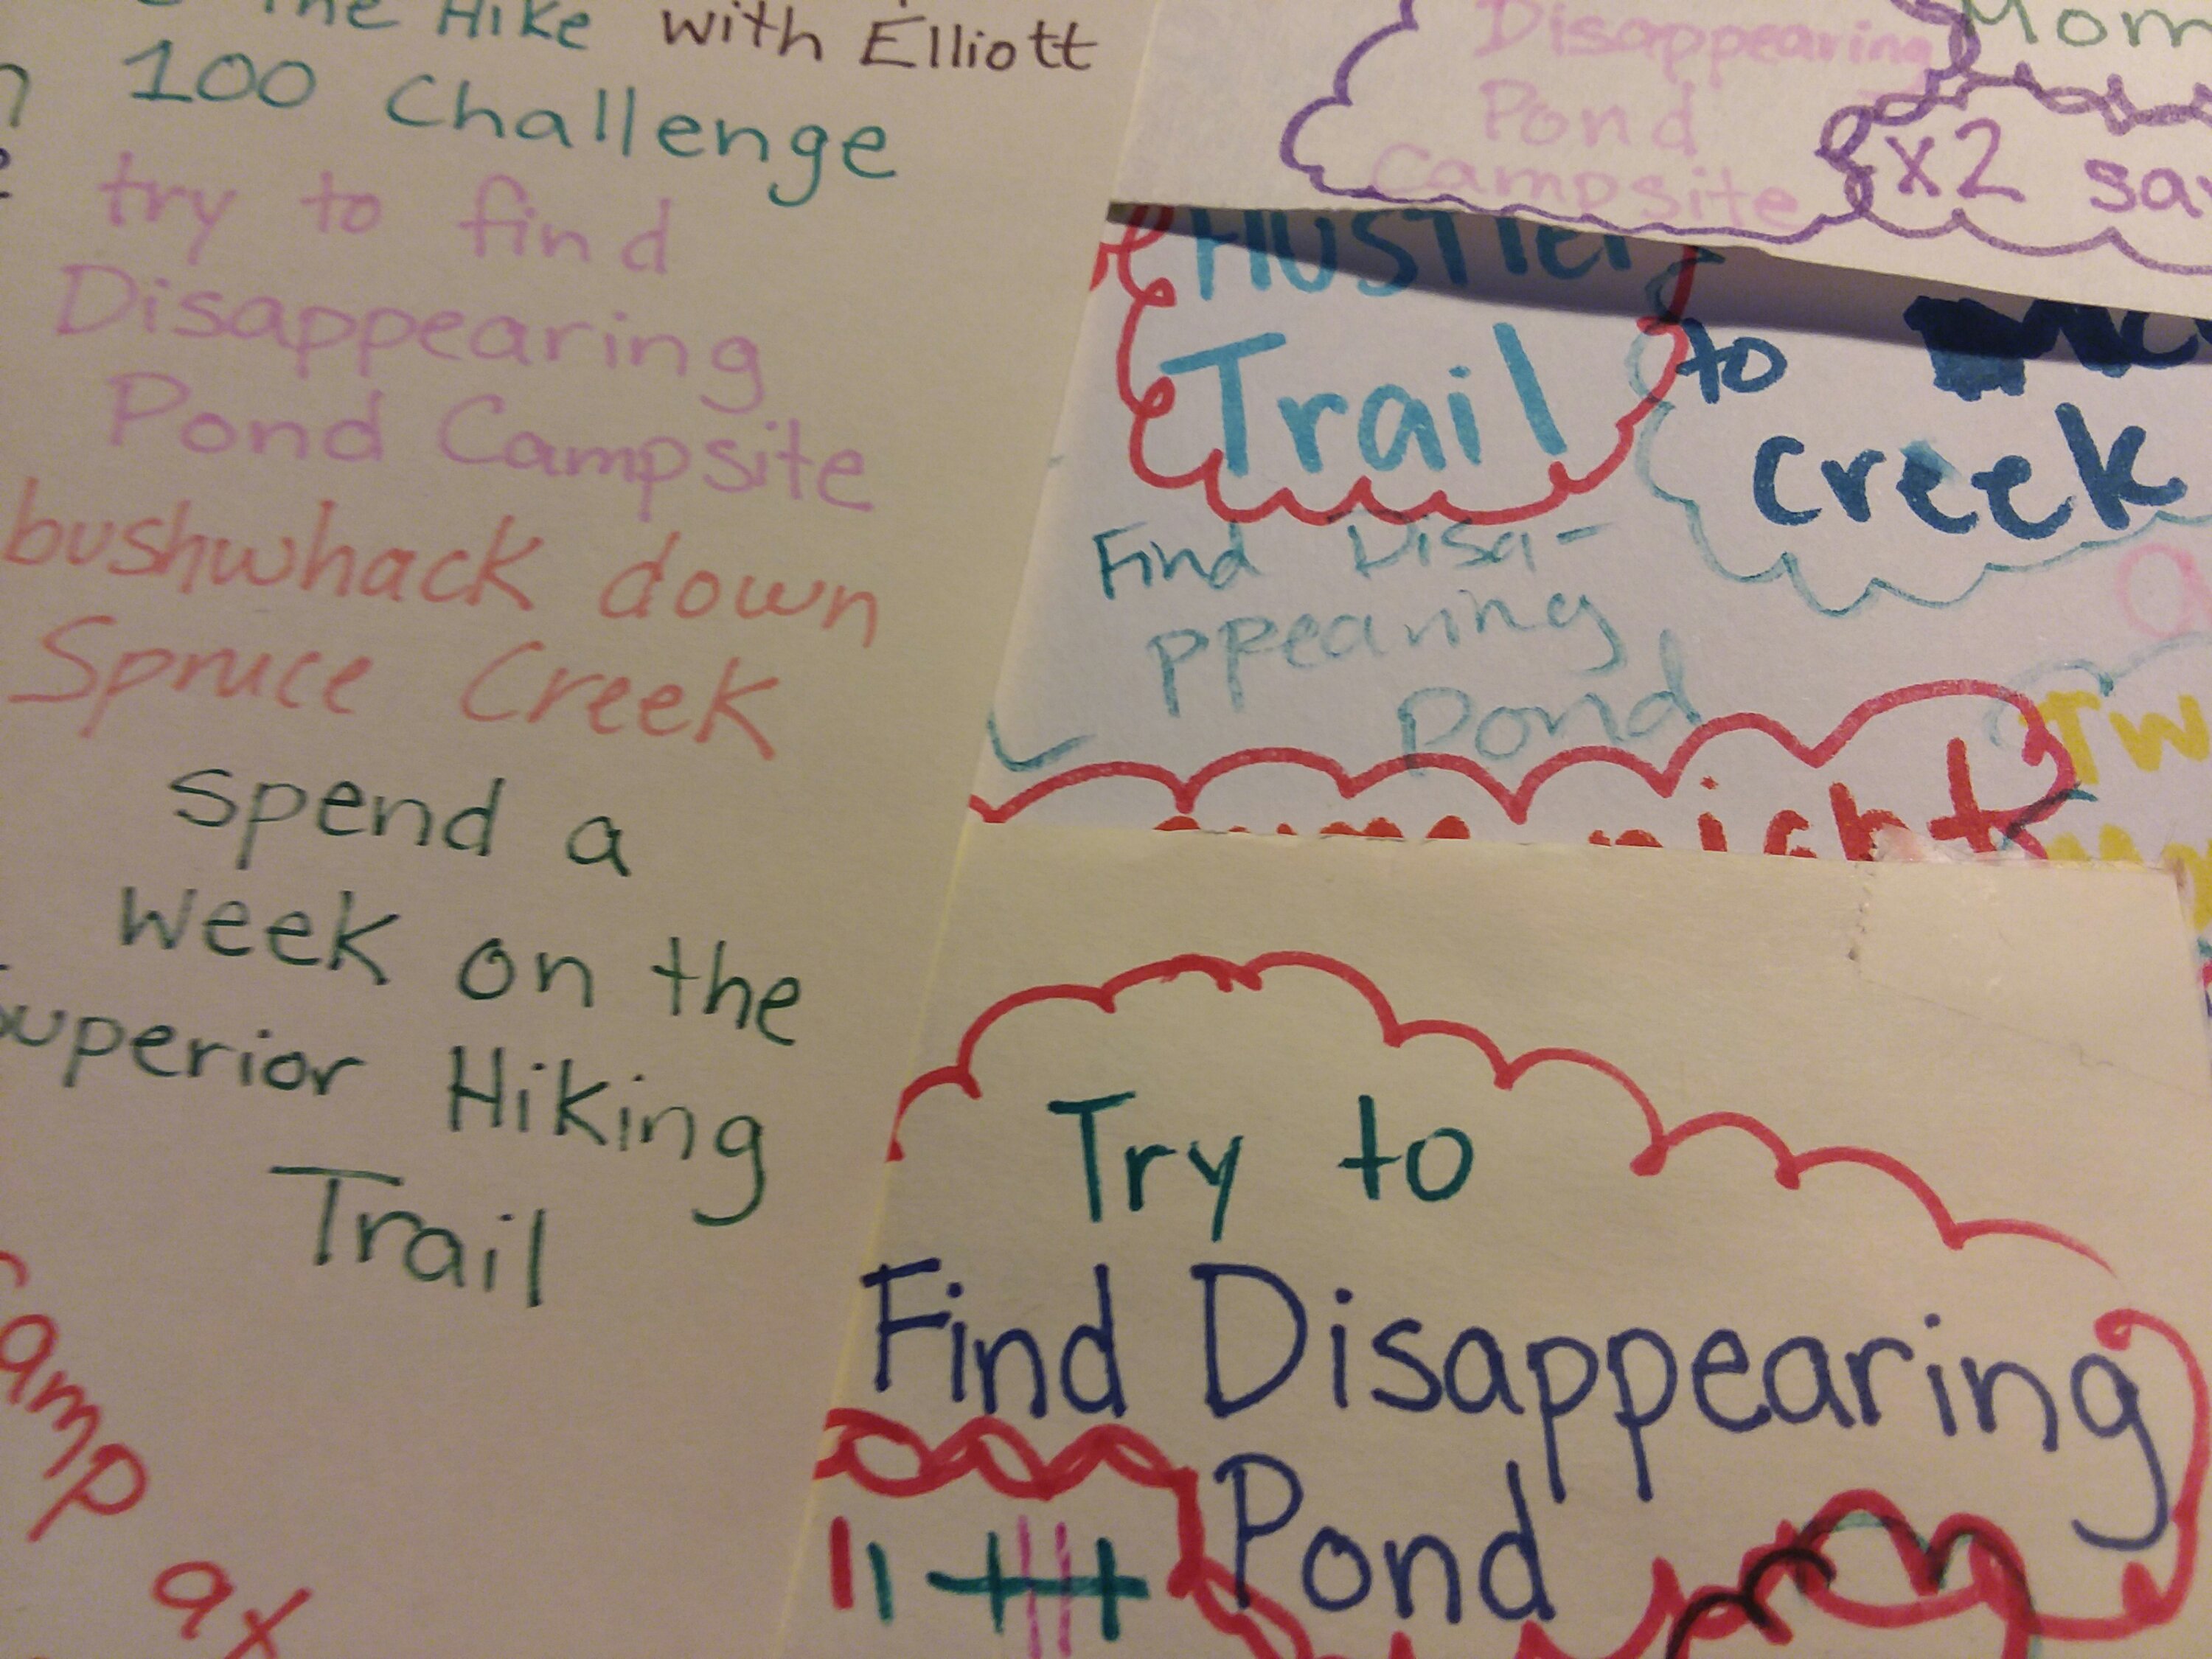 the Hike with Elliott
100 Challenge
try to find
Disappearing
Pond Campsite
bushwhack down
Spruce Creek
spend a
week on the
Superior Hiking
Trail
amp
ax
Disappearing
Pond
Campsite
Mom
x2
Hustler
Trail
to
creek
Find Disa-
ppearing
Pond
night
Try to
Find Disappearing
Pond